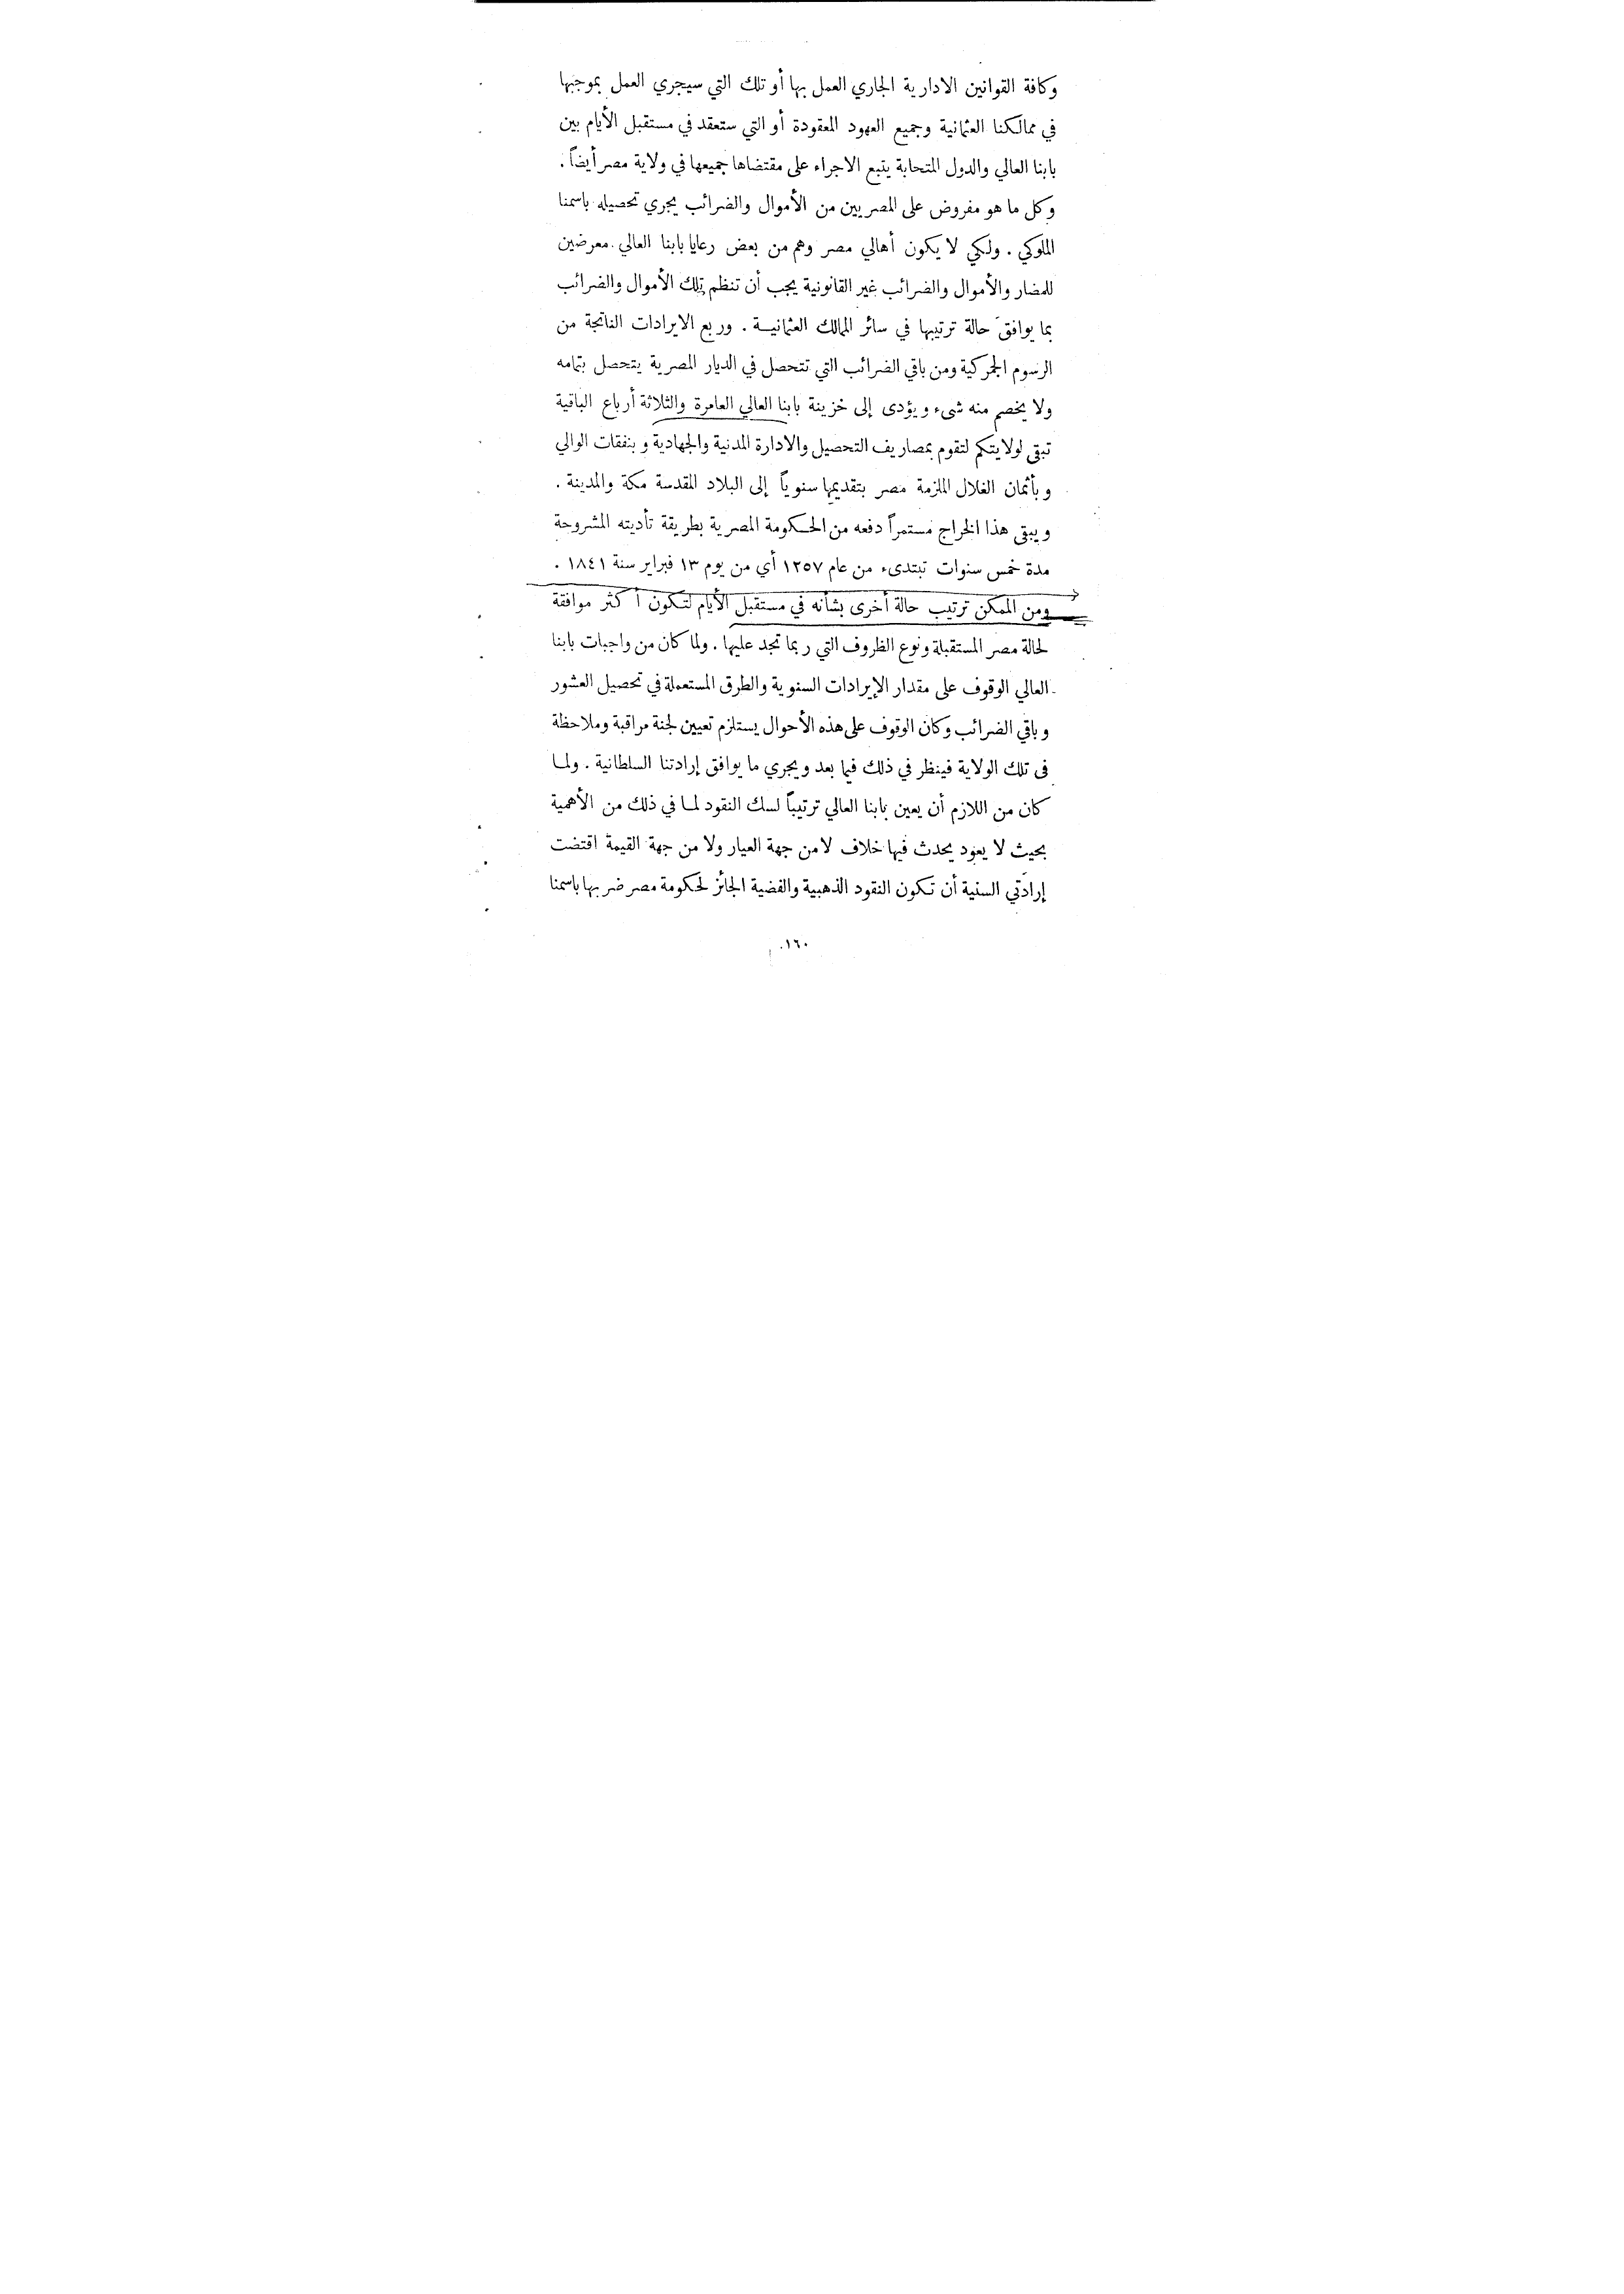 وكافة القوانين الادارية الجاري العمل بها أو تلك التي سيجري العمل بموجبها
في ممالكنا العثمانية وجميع العهود المعقودة أو التي ستعقد في مستقبل الأيام بين
بابنا العالي والدول المتحابة يتبع الاجراء على مقتضاها جميعها في ولاية مصر أيضاً .
وكل ما هو مفروض على المصريين من الأموال والضرائب يجري تحصيله باسمنا
الملوكي . ولكي لا يكون أهالي مصر وهم من بعض رعايا بابنا العالي معرضين
للمضار والأموال والضرائب غير القانونية يجب أن تنظم تلك الأموال والضرائب
بما يوافق حالة ترتيبها في سائر الممالك العثمانيـة . وربع الايرادات الناتجة من
الرسوم الجمركية ومن باقي الضرائب التي تتحصل في الديار المصرية يتحصل بتمامه
ولا يخصم منه شىء ويؤدى إلى خزينة بابنا العالي العامرة والثلاثة أرباع الباقية
تبقى لولايتكم لتقوم بمصاريف التحصيل والادارة المدنية والجهادية وبنفقات الوالي
وبأثمان الغلال الملزمة مصر بتقديمها سنوياً إلى البلاد المقدسة مكة والمدينة .
ويبقى هذا الخراج مستمراً دفعه من الحكومة المصرية بطريقة تأديته المشروحة
مدة خمس سنوات تبتدىء من عام ١٢٥٧ أي من يوم ١٣ فبراير سنة ١٨٤١ .
ومن الممكن ترتيب حالة أخرى بشأنه في مستقبل الأيام لتكون أكثر موافقة
لحالة مصر المستقبلة ونوع الظروف التي ربما تجد عليها . ولما كان من واجبات بابنا
العالي الوقوف على مقدار الإيرادات السنوية والطرق المستعملة في تحصيل العشور
وباقي الضرائب وكان الوقوف على هذه الأحوال يستلزم تعيين لجنة مراقبة وملاحظة
فى تلك الولاية فينظر في ذلك فيما بعد ويجري ما يوافق إرادتنا السلطانية . ولمـا
كان من اللازم أن يعين بابنا العالي ترتيباً لسك النقود لمـا في ذلك من الأهمية
بحيث لا يعود يحدث فيها خلاف لا من جهة العيار ولا من جهة القيمة اقتضت
إرادتي السنية أن تكون النقود الذهبية والفضية الجائز لحكومة مصر ضربها باسمنا
١٦٠